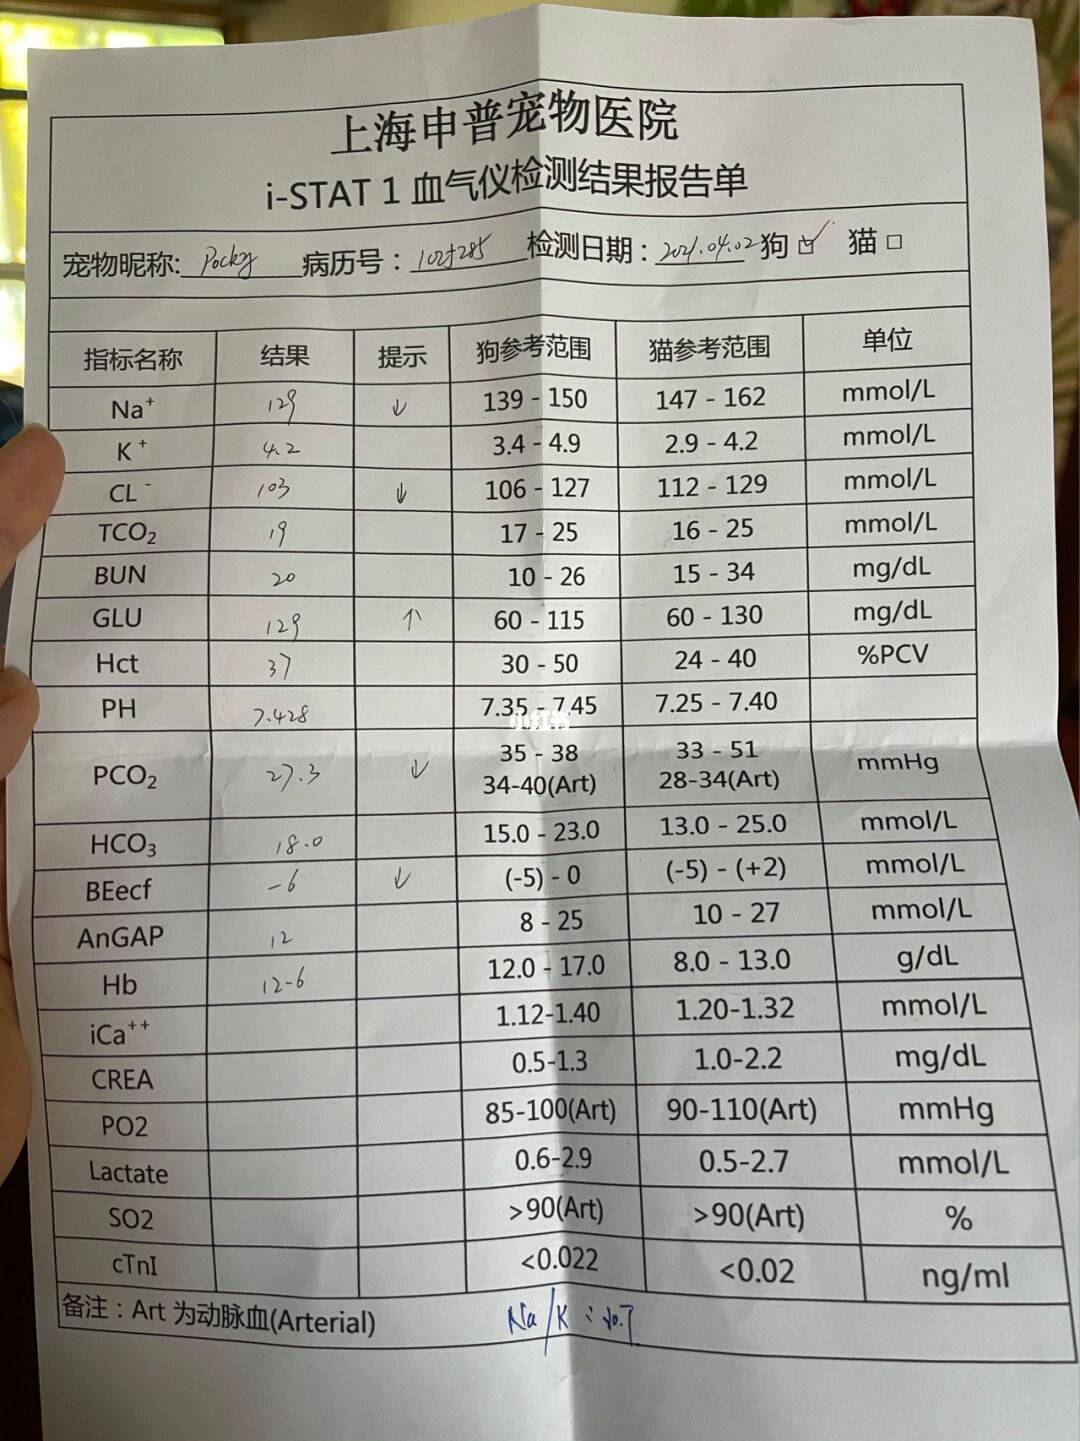 上海申普宠物医院
i-STAT 1 血气仪检测结果报告单
宠物昵称: Pocky 病历号： 检测日期： 2021.04.02 狗 ☑ 猫 □
指标名称 结果 提示 狗参考范围 猫参考范围 单位
Na⁺ 129 ↓ 139 - 150 147 - 162 mmol/L
K⁺ 4.2 3.4 - 4.9 2.9 - 4.2 mmol/L
CL⁻ 103 ↓ 106 - 127 112 - 129 mmol/L
TCO₂ 19 17 - 25 16 - 25 mmol/L
BUN 20 10 - 26 15 - 34 mg/dL
GLU 129 ↑ 60 - 115 60 - 130 mg/dL
Hct 37 30 - 50 24 - 40 %PCV
PH 7.428 7.35 - 7.45 7.25 - 7.40
小红书
PCO₂ 27.3 ↓ 35 - 38 33 - 51 mmHg
34-40(Art) 28-34(Art)
HCO₃ 18.0 15.0 - 23.0 13.0 - 25.0 mmol/L
BEecf -6 ↓ (-5) - 0 (-5) - (+2) mmol/L
AnGAP 12 8 - 25 10 - 27 mmol/L
Hb 12.6 12.0 - 17.0 8.0 - 13.0 g/dL
iCa⁺⁺ 1.12-1.40 1.20-1.32 mmol/L
CREA 0.5-1.3 1.0-2.2 mg/dL
PO2 85-100(Art) 90-110(Art) mmHg
Lactate 0.6-2.9 0.5-2.7 mmol/L
SO2 >90(Art) >90(Art) %
cTnI <0.022 <0.02 ng/ml
备注：Art 为动脉血(Arterial) Na/K :